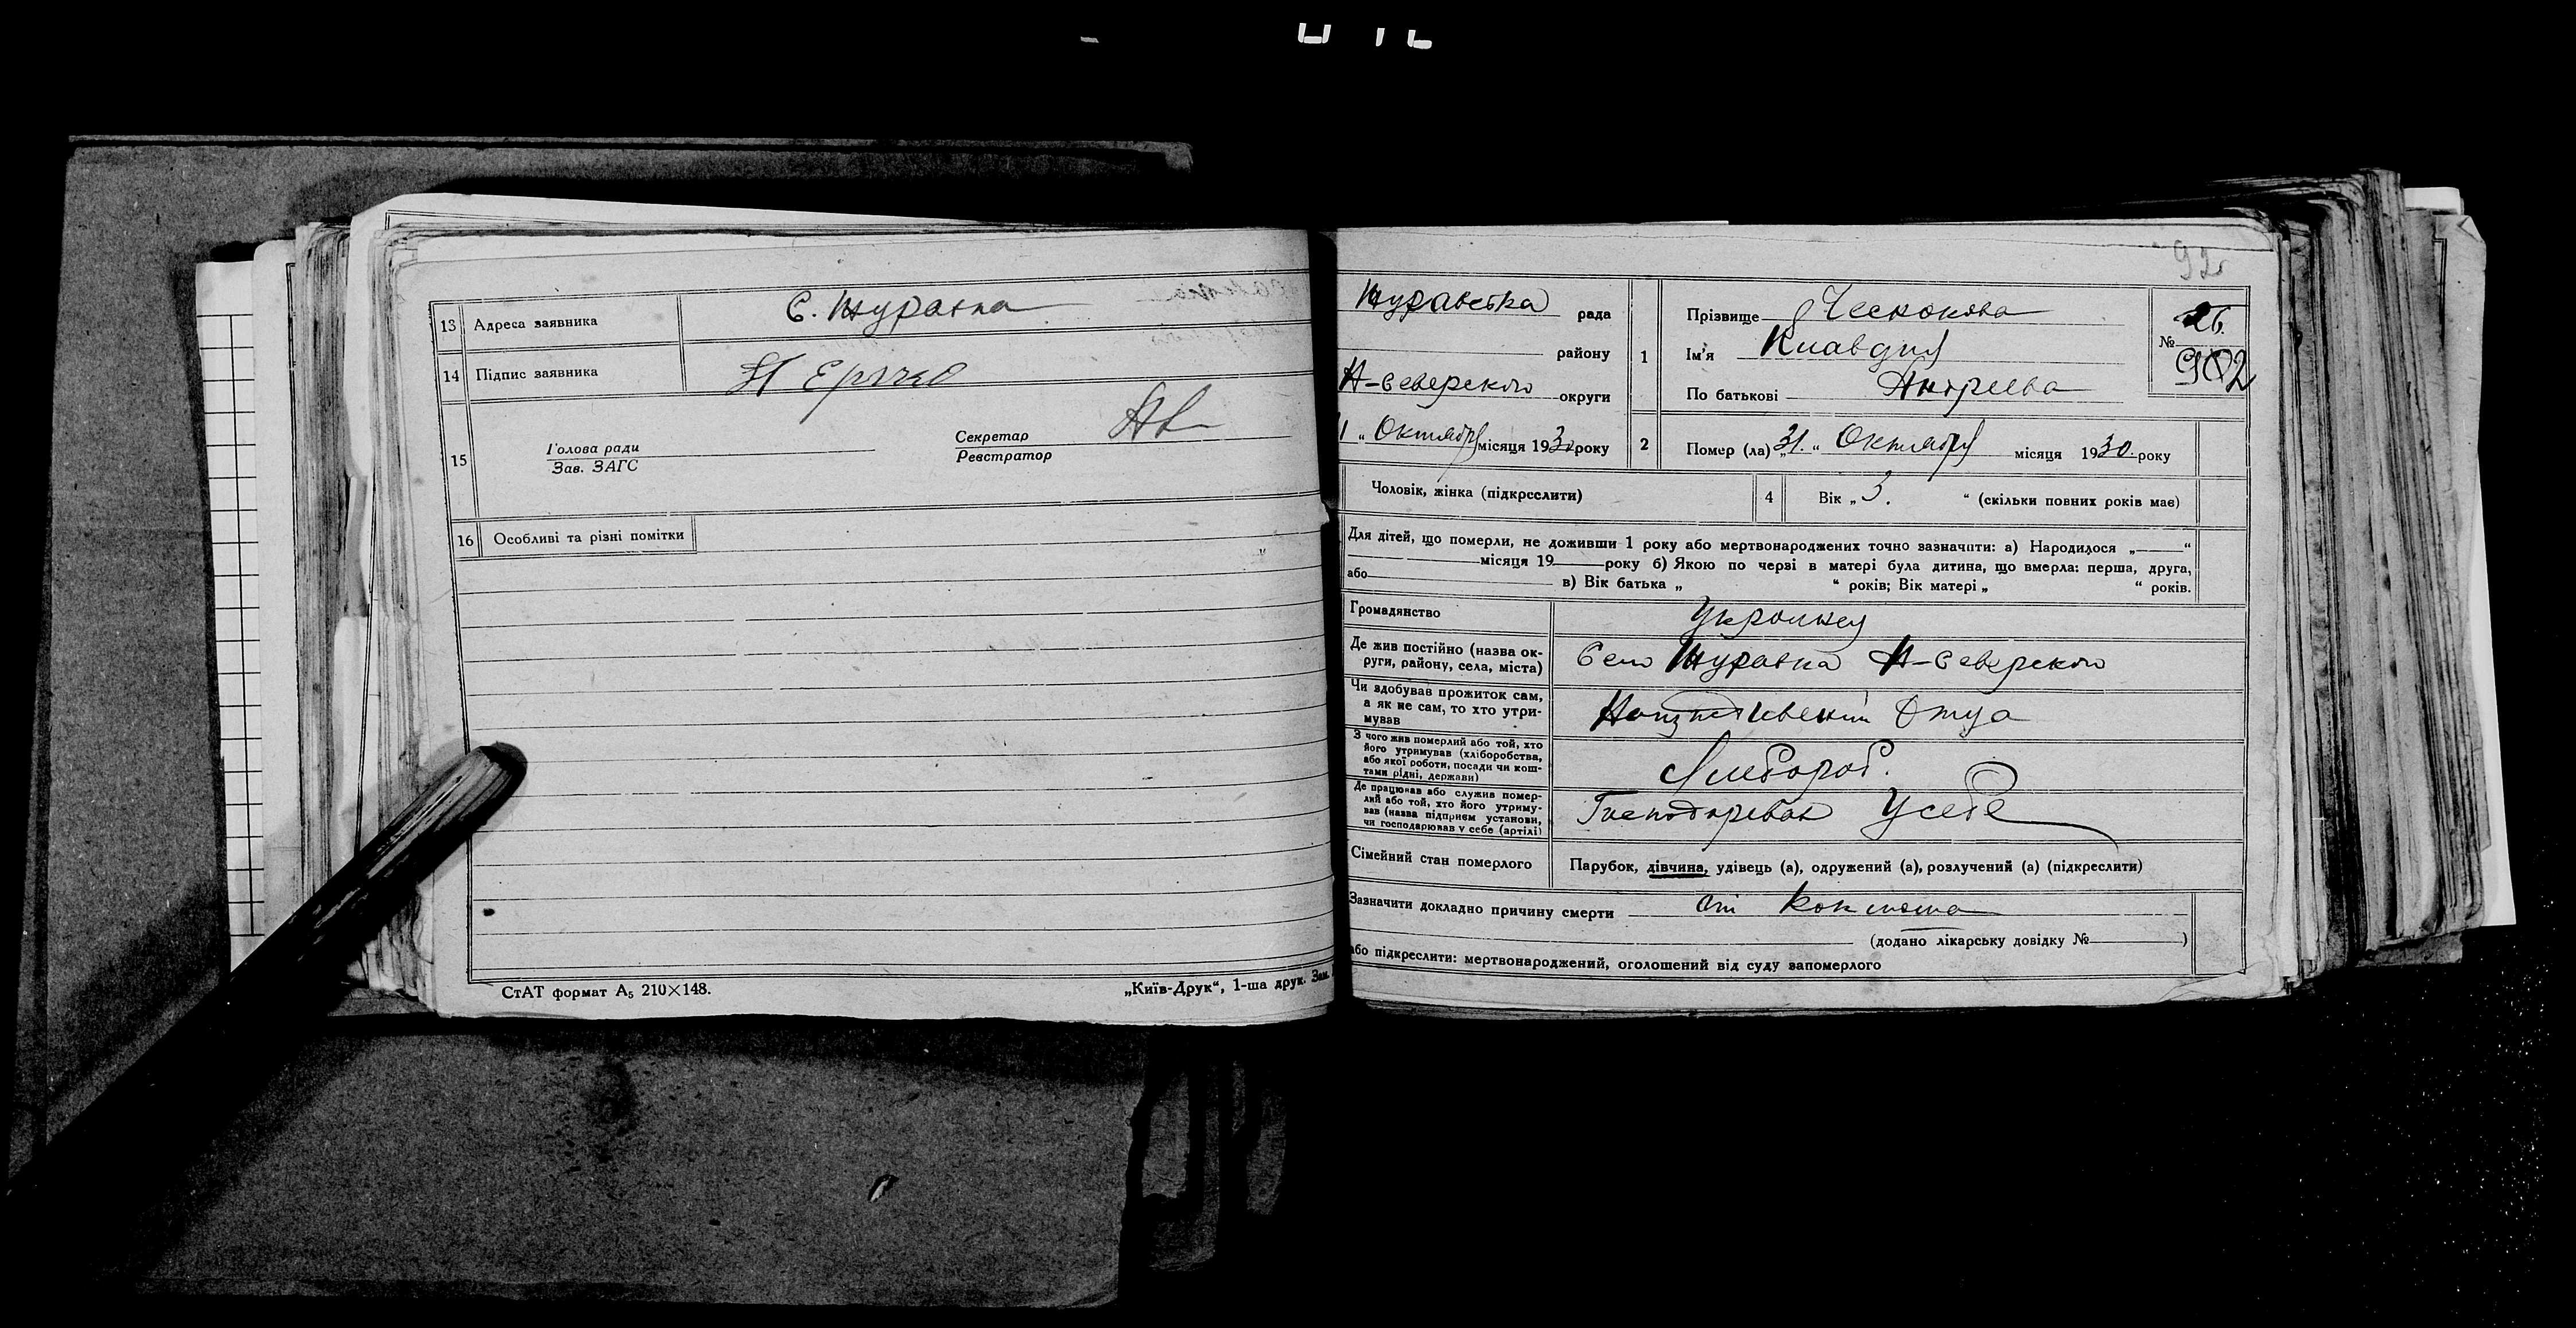 13 Адреса заявника С. Журавка
14 Підпис заявника
15 Голова ради
Зав. ЗАГС
Секретар
Реєстратор
16 Особливі та різні помітки
СтАТ формат А₅ 210×148.
„Київ-Друк“, 1-ша друк. Зам.
92
Журавська рада
району
Н-Северского округи
1 „ Октября місяця 1930 року
1 Прізвище Ческокова
Ім'я Клавдия
По батькові Андреева
№ 26.
902
2 Помер (ла) „31.“ Октября місяця 1930. року
Чоловік, жінка (підкреслити)
4 Вік „ 3. “ (скільки повних років має)
Для дітей, що померли, не доживши 1 року або мертвонароджених точно зазначити: а) Народилося „ “
місяця 19 року б) Якою по черзі в матері була дитина, що вмерла: перша, друга,
або в) Вік батька „ “ років; Вік матері „ “ років.
Громадянство Укроинец
Де жив постійно (назва округи, району, села, міста) Село Журавка Н-Северского
Чи здобував прожиток сам, а як не сам, то хто утримував Отца
З чого жив померлий або той, хто його утримував (хліборобства, або якої роботи, посади чи коштами рідні, держави) Хлебороб.
Де працював або служив померлий або той, хто його утримував (назва підприєм установи, чи господарював у себе (артілі) Господаревал Усебе
Сімейний стан померлого Парубок, дівчина, удівець (а), одружений (а), розлучений (а) (підкреслити)
Зазначити докладно причину смерти от Коклюша
(додано лікарську довідку № )
або підкреслити: мертвонароджений, оголошений від суду запомерлого